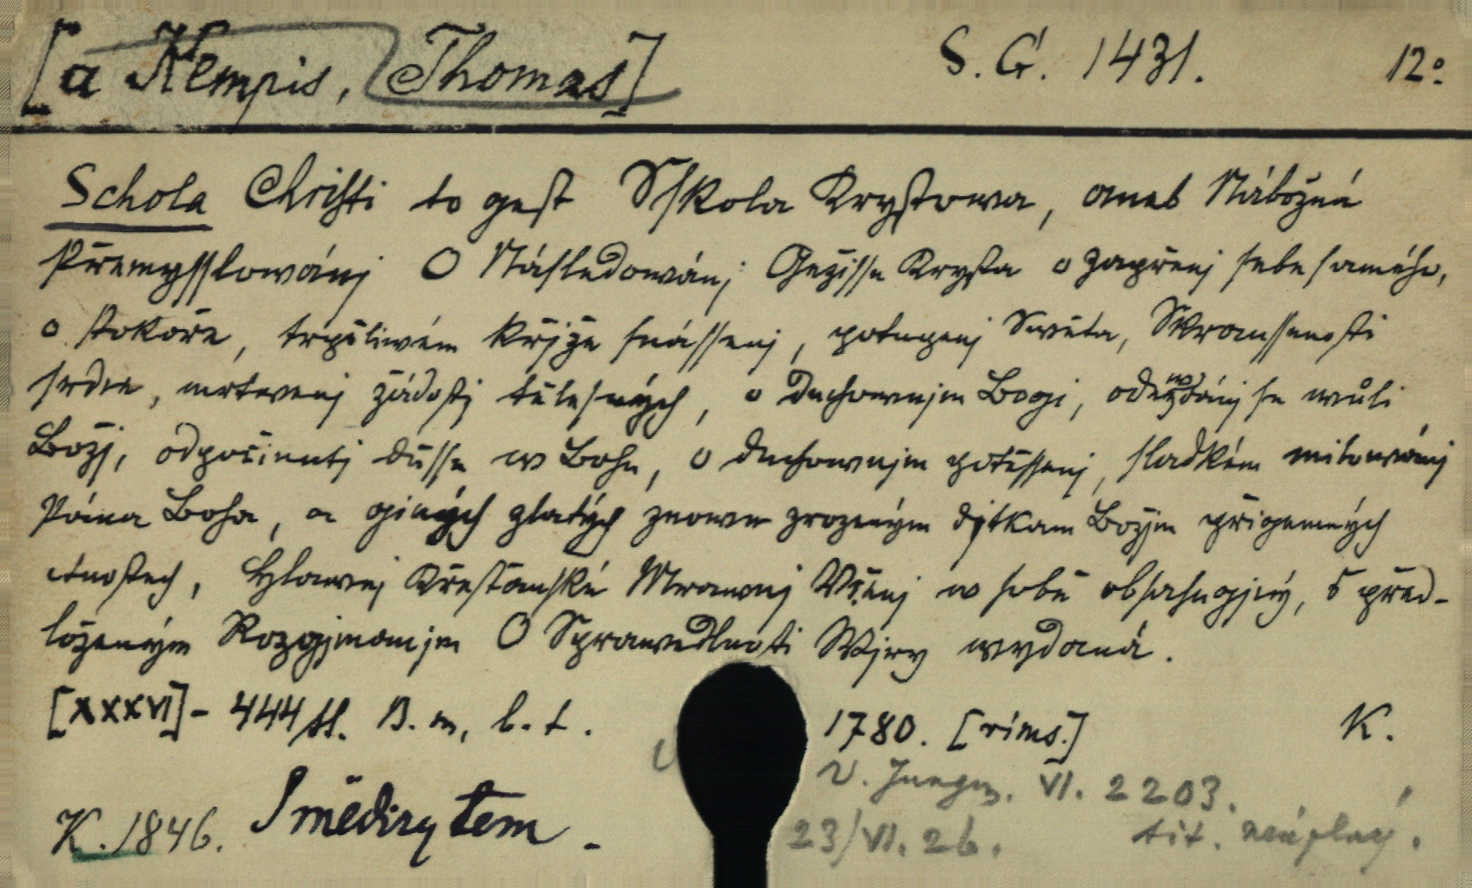 [a Kempis, Thomas] S. G. 1431. 12°.
Schola Christi to gest Sskola Krystowa, aneb Nábožná
Přemysslowánj O Následowánj Gežisse Krysta o zapřenj sebe samého,
o Pokoře, trpěliwém křjže snássenj, potupenj Swěta, Skraussenosti
srdce, mrtwenj žádostj tělesných, o Duchownjm Bogi, odewzdánj se wůli
Božj, odpočinutj dusse w Bohu, o duchownjm potěssenj, sladkém milowánj
Pána Boha, a giných zlatých znowu zrozeným djtkam Božjm přigemných
ctnostech, Hlawnj Křestianské Mrawnj Včenj w sobě obsahugjcý, s před-
loženým Rozgjmanjm O Sprawedlnosti Wjry wydaná.
[XXXVI]- 444 str. B. m, b. t. 1780. [rims.] K.
V. Jungm. VI. 2203.
K. 1846. S mědirytem. 23/VI. 26. tit. neúplný.